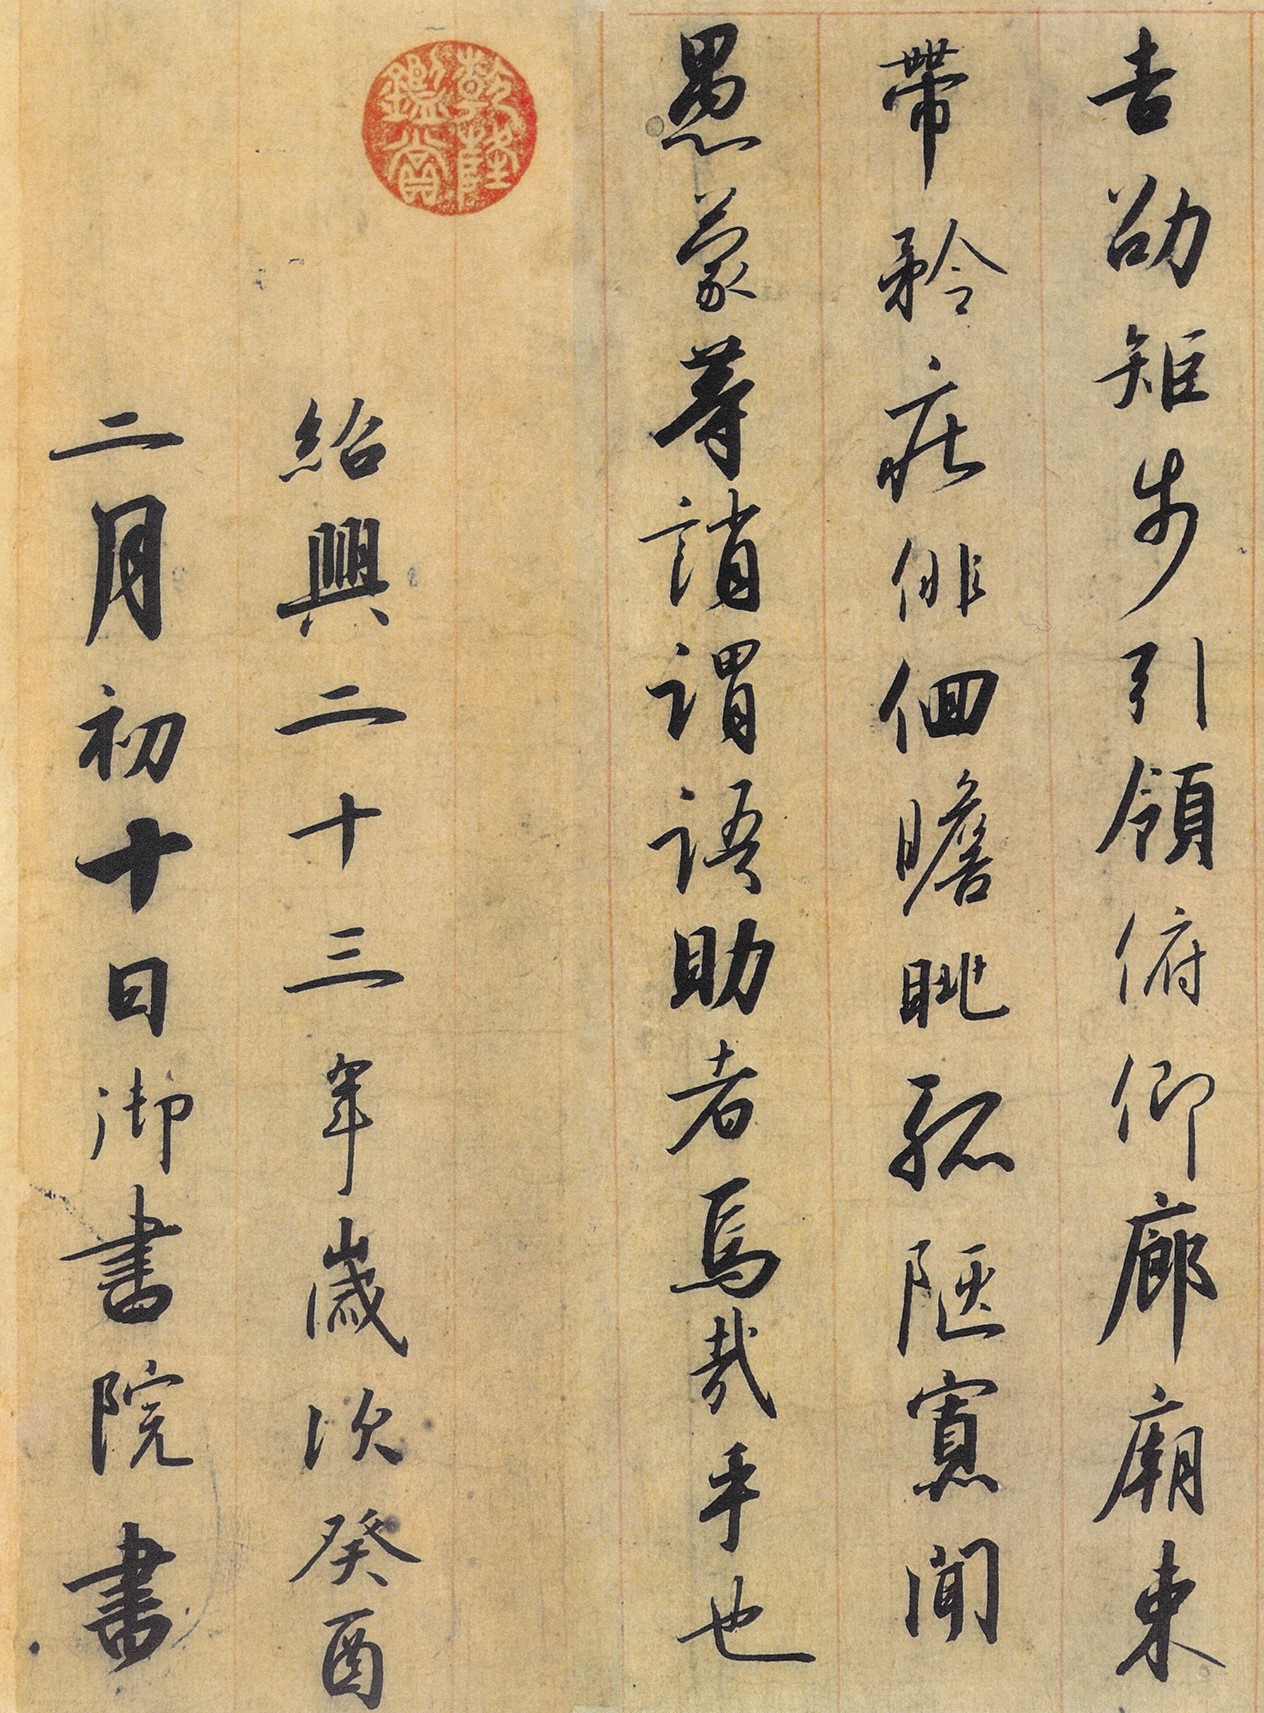 吉劭矩步引領俯仰廊廟束
帶矜莊俳佪瞻眺孤陋寡聞
愚蒙等誚謂語助者焉哉乎也
乾隆鑑賞
紹興二十三年歲次癸酉
二月初十日御書院書